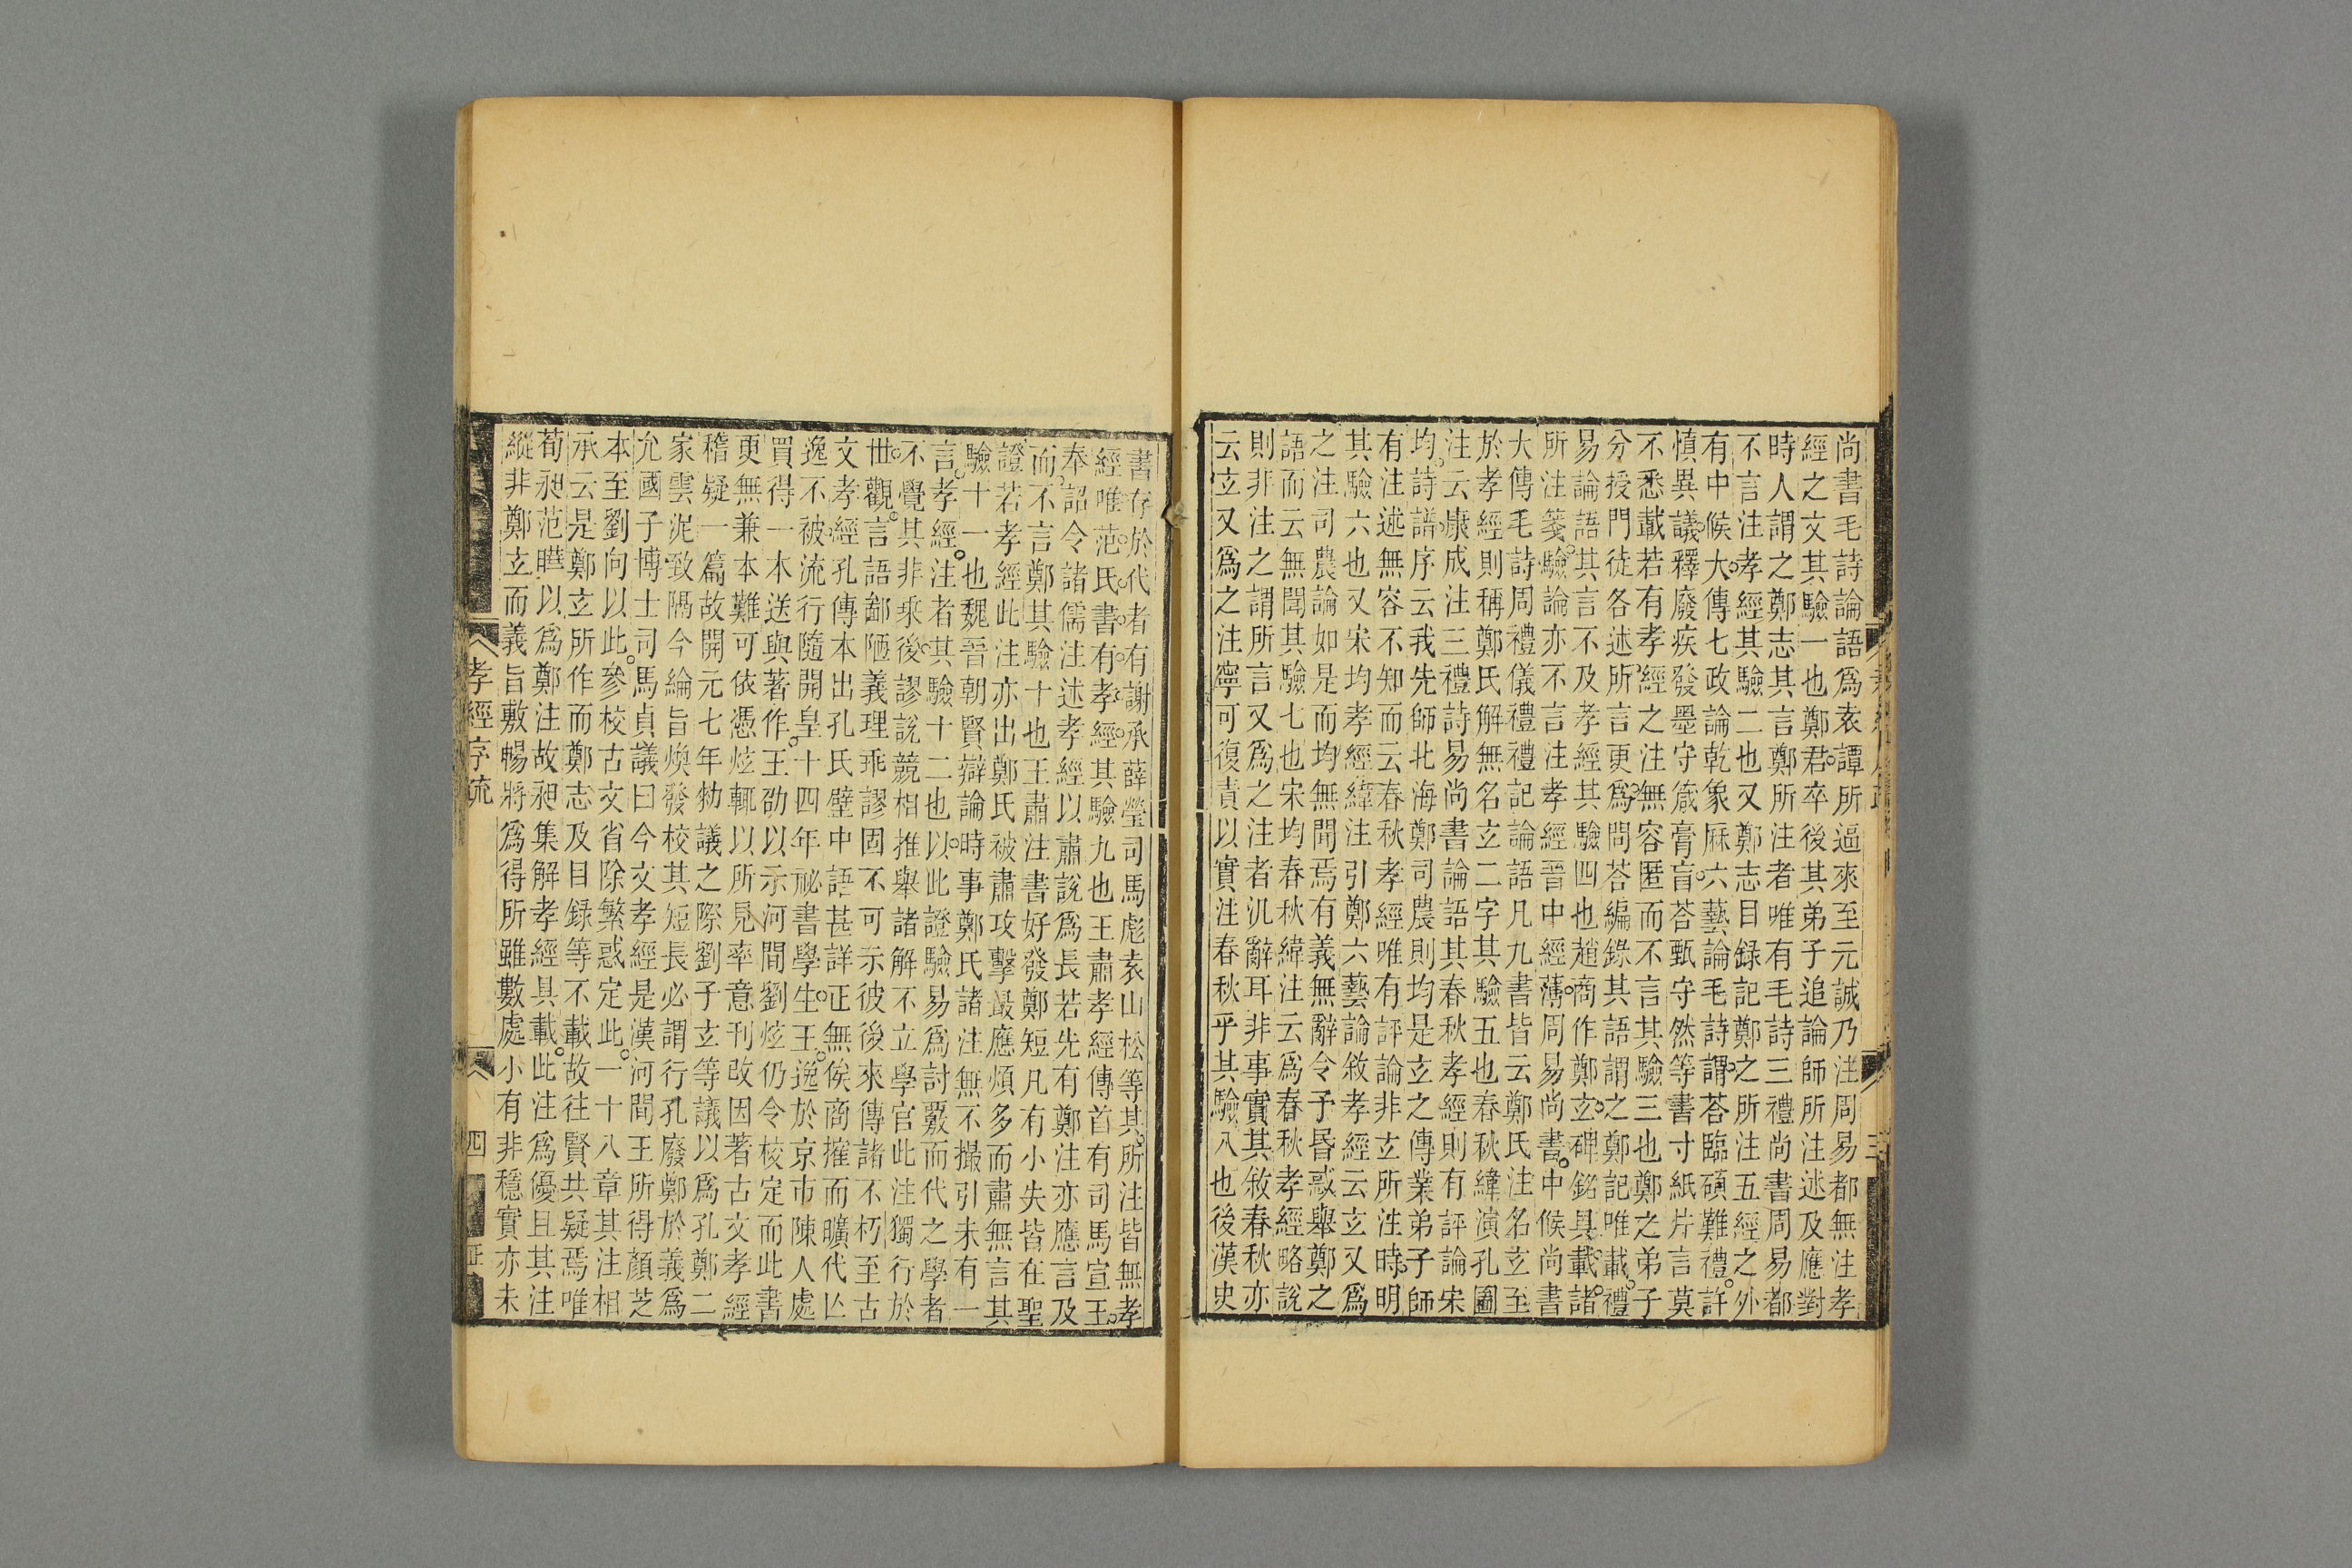 尚書毛詩論語爲袁譚所逼來至元誠乃注周易都無注孝
經之文其驗一也鄭君卒後其弟子追論師所注述及應對
時人謂之鄭志其言鄭所注者唯有毛詩三禮尚書周易都
不言注孝經其驗二也又鄭志目録記鄭之所注五經之外
有中候大傳七政論乾象厤六藝論毛詩譜荅臨碩難禮許
慎異議釋廢疾發墨守箴膏肓荅甄守然等書寸紙片言莫
不悉載若有孝經之注無容匿而不言其驗三也鄭之弟子
分授門徒各述所言更爲問荅編錄其語謂之鄭記唯載禮
易論語其言不及孝經其驗四也趙商作鄭玄碑銘具載諸
所注箋驗論亦不言注孝經晉中經薄周易尚書中候尚書
大傳毛詩周禮儀禮禮記論語凡九書皆云鄭氏注名玄至
於孝經則稱鄭氏解無名玄二字其驗五也春秋緯演孔圖
注云康成注三禮詩易尚書論語其春秋孝經則有評論宋
均詩譜序云我先師北海鄭司農則均是玄之傳業弟子師
有注述無容不知而云春秋孝經唯有評論非玄所注時明
其驗六也又宋均孝經緯注引鄭六藝論敘孝經云玄又爲
之注司農論如是而均無聞焉有義無辭令予昬惑舉鄭之
語而云無聞其驗七也宋均春秋緯注云爲春秋孝經略說
則非注之謂所言又爲之注者汎辭耳非事實其敘春秋亦
云玄又爲之注寧可復責以實注春秋乎其驗八也後漢史
書存於代者有謝承薛瑩司馬彪袁山松等其所注皆無孝
經唯范氏書有孝經其驗九也王肅孝經傳首有司馬宣王
奉詔令諸儒注述孝經以肅說爲長若先有鄭注亦應言及
而不言鄭其驗十也王肅注書好發鄭短凡有小失皆在聖
證若孝經此注亦出鄭氏被肅攻擊最應煩多而肅無言其
驗十一也魏晉朝賢辯論時事鄭氏諸注無不撮引未有一
言孝經注者其驗十二也以此證驗易爲討覈而代之學者
不覺其非乘後謬說競相推舉諸解不立學官此注獨行於
世觀言語鄙陋義理乖謬固不可示彼後來傳諸不朽至古
文孝經孔傳本出孔氏壁中語甚詳正無俟商搉而曠代亾
逸不被流行隨開皇十四年祕書學生王逸於京市陳人處
買得一本送與著作王劭以示河間劉炫仍令校定而此書
更無兼本難可依憑炫輒以所見率意刊改因著古文孝經
稽疑一篇故開元七年勑議之際劉子玄等議以爲孔鄭二
家雲泥致隔今綸旨煥發校其短長必謂行孔廢鄭於義爲
允國子博士司馬貞議曰今文孝經是漢河間王所得顏芝
本至劉向以此參校古文省除繁惑定此一十八章其注相
承云是鄭玄所作而鄭志及目録等不載故往賢共疑焉唯
荀昶范曄以爲鄭注故昶集解孝經具載此注爲優且其注
縱非鄭玄而義旨敷暢將爲得所雖數處小有非穩實亦未
孝經序疏
四